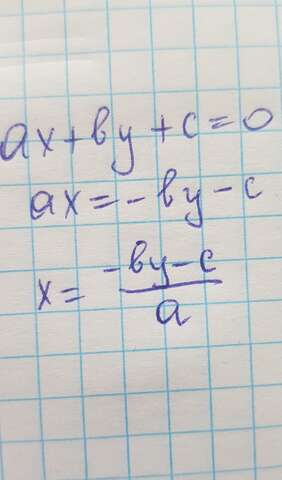 ax+by+c=0
ax=-by-c
x= -by-c
a